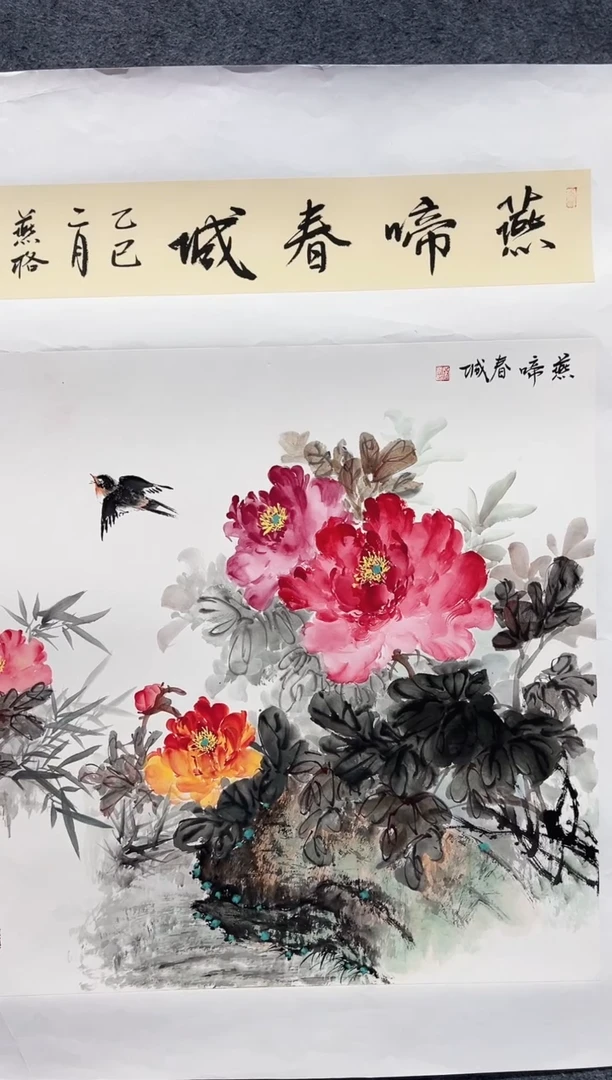 燕啼春城
乙巳
二月
燕格
燕啼春城